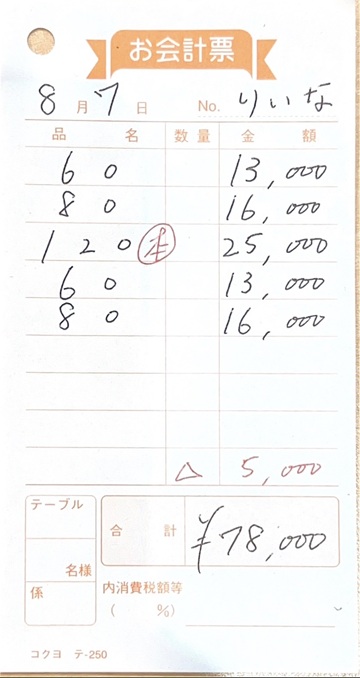 お会計票
8月7日 No. りいな
品名 数量 金額
60 13,000
80 16,000
120 本 25,000
60 13,000
80 16,000
△ 5,000
テーブル
名様
係
合計 ¥78,000
内消費税額等
( %)
コクヨ テ-250